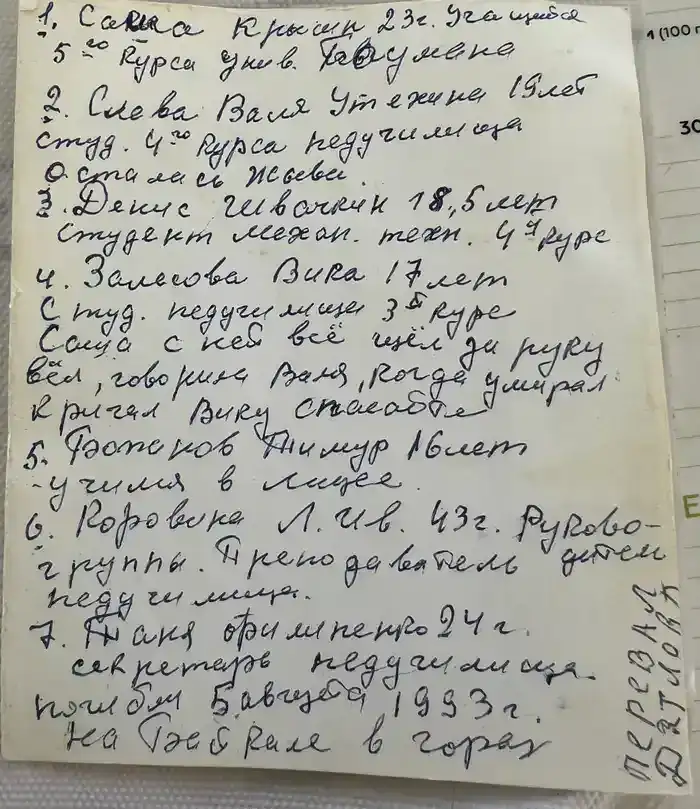 1. Саша Крысин 23г. Учащийся
5го Курса унив. Баумана
2. Слева Валя Утехина 19 лет
студ. 4го Курса педучилища
Осталась жива.
3. Денис Швачкин 18,5 лет
студент механ. техн. 4й Курс
4. Залесова Вика 17 лет
Студ. педучилища 3й Курс
Саша с ней всё щёл за руку
вёл, говорила Валя, когда умирал
Кричал Вику спасайте
5. Бапанов Тимур 16 лет
учился в лицее.
6. Коровина Л. Ив. 43г. Руково-
группы. Преподаватель дитем
педучилища.
7. Таня Филипенко 24 г.
секретарь педучилища.
погибли 5 августа 1993г.
на Байкале в горах
перевал
Дятлова
1 (100 г
30
Е